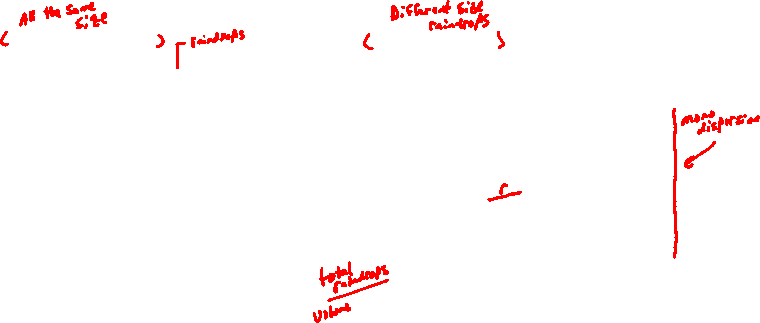 All the same
size
raindrops
Different size
raindrops
mono
dispersion
r
total
raindrops
volume